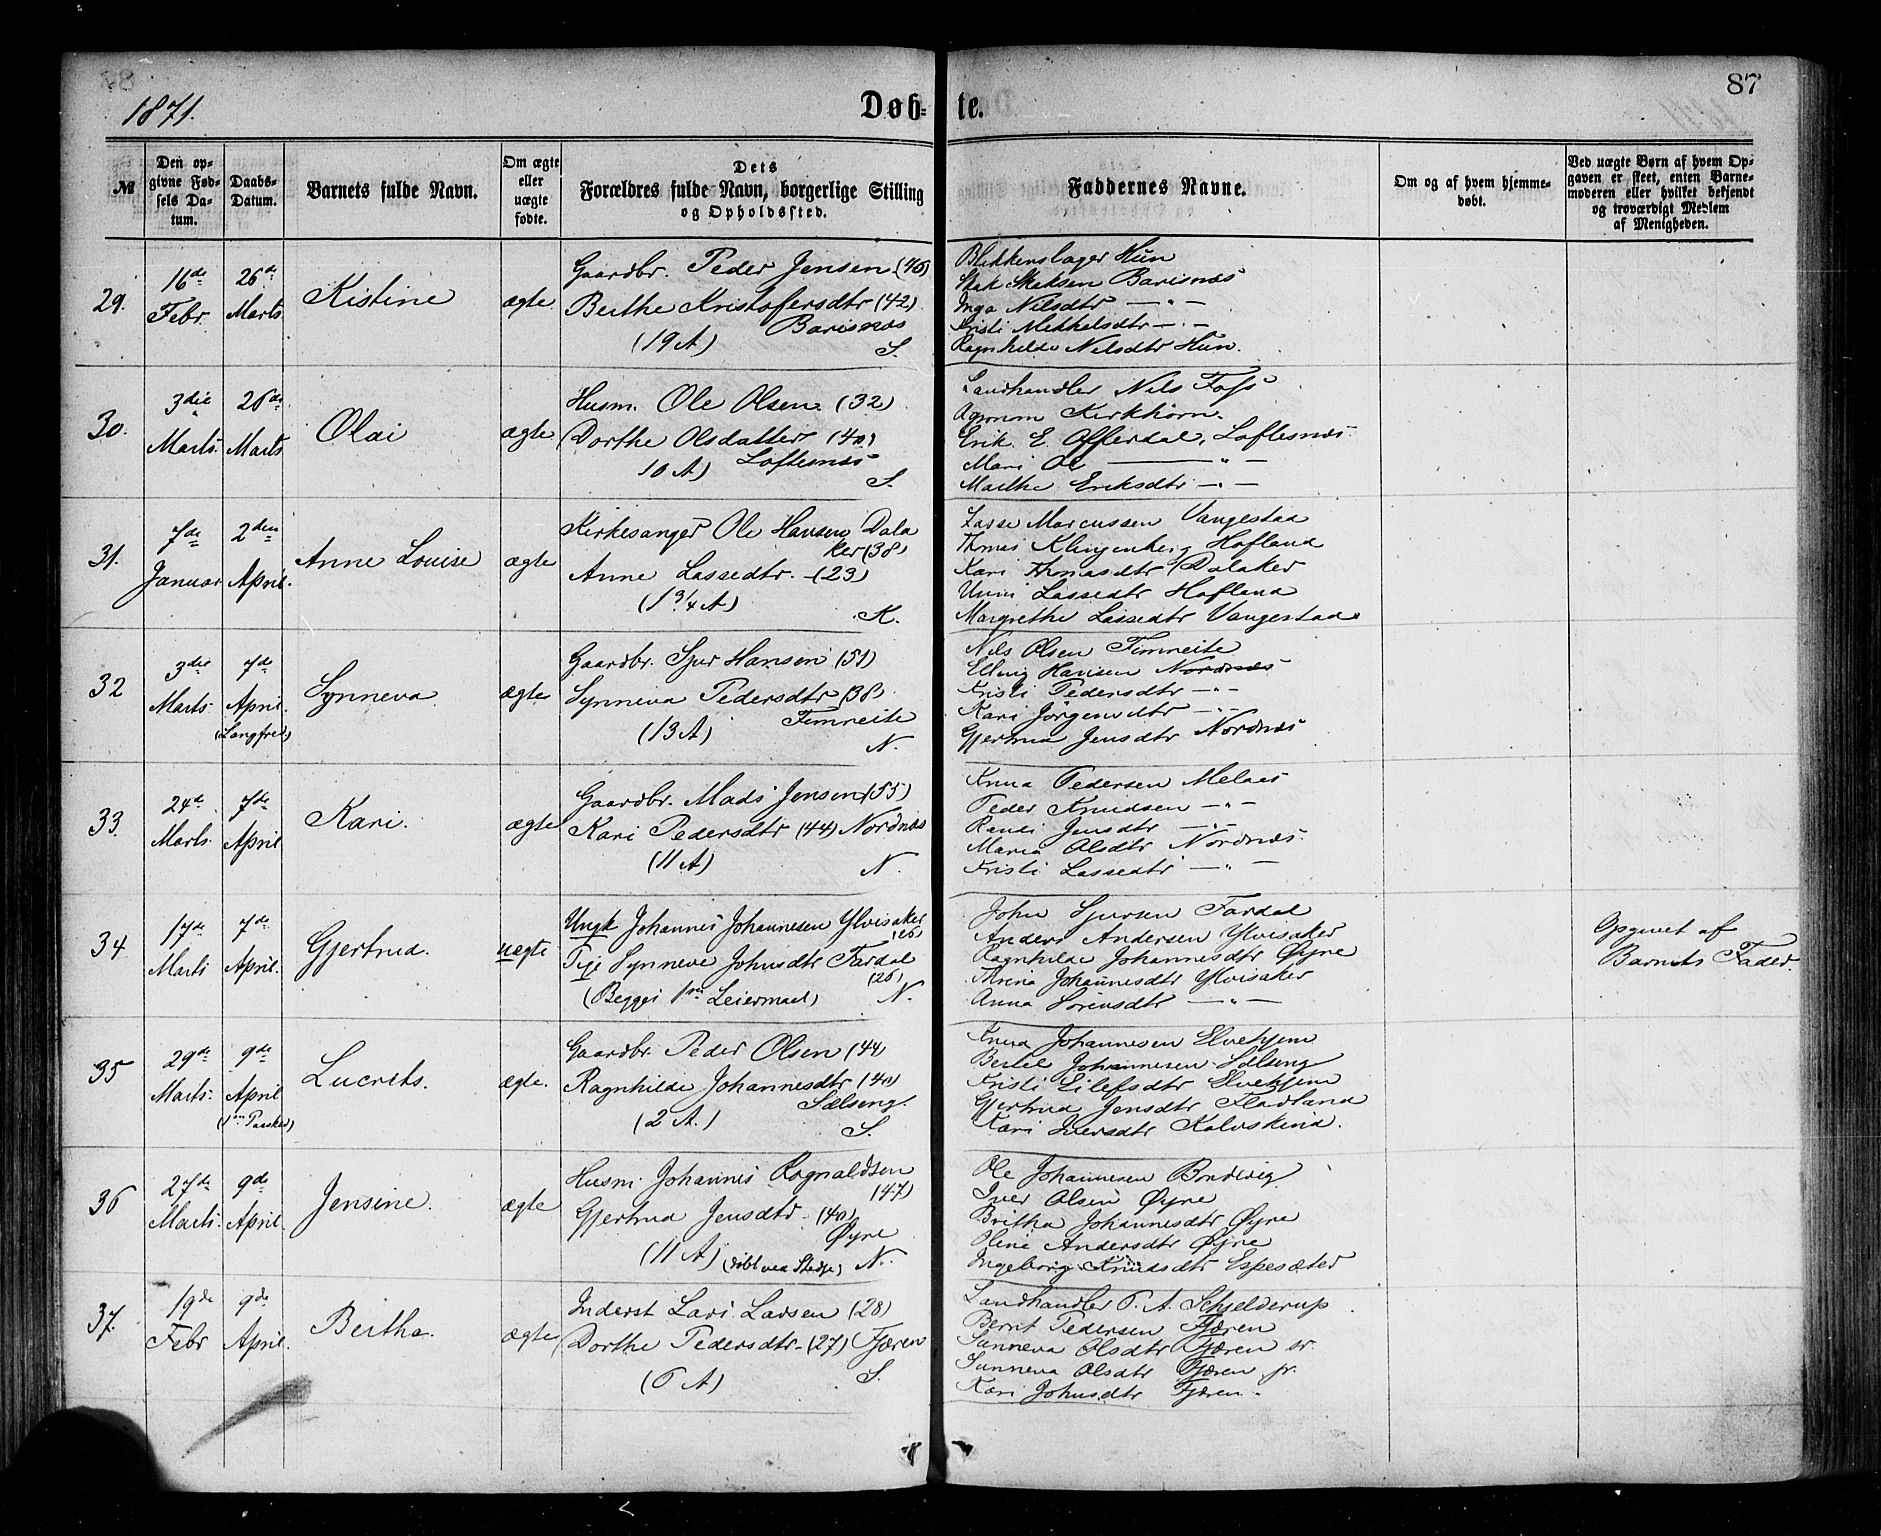 1871.
Døb=
te.
87
№
Den op=
givne Fød=
sels Da=
tum.
Daabs=
Datum.
Barnets fulde Navn.
Om ægte
eller
uægte
fødte.
Dets
Forældres fulde Navn, borgerlige Stilling
og Opholdssted.
Faddernes Navne.
Om og af hvem hjemme=
døbt.
Ved uægte Børn af hvem Op=
gaven er skeet, enten Barne=
moderen eller hvilket bekjendt
og troværdigt Medlem
af Menigheden.
29.
16de
Febr.
26de
Marts
Kistine
ægte
Gaardbr. Peder Jensen (40)
Berthe Kristofersdtr (42)
Barisnæs
(19 A)
S.
Blikkenslager Hun
Stak Staksen Barisnæs
Inga Nilsdtr — " —
Kristi Mikkelsdtr — " —
Ragnhilde Nilsdtr Hun.
30.
3die
Marts.
26de
Marts
Olai
ægte
Husm. Ole Olsen (32)
Dorthe Olsdatter (40)
Loftesnæs
10 A)
S.
Landhandler Nils Foss
Agronom Kirkhorn.
Erik E. Offerdal, Loftesnæs.
Mari — " —
Marthe Eriksdtr — " —
31.
7de
Januar
2den
April.
Anne Louise
ægte
Kirkesanger Ole Hansen Dala
ker (38)
Anne Lassedtr. (23)
(1 3/4 A)
K.
Lasse Marcussen Vangestad
Thomas Klingenberg Hofland
Kari Thomasdtr Dalaker
Unni Lassedtr Hofland
Margrethe Lassedtr Vangestad
32
3die
Marts
7de
April.
(Langfred)
Synneva
ægte
Gaardbr. Sjur Hansen (51)
Synneva Pedersdtr (38)
Fimreite
(13 A)
N.
Nils Olsen Fimreite
Elling Hansen Nordnæs
Kristi Pedersdtr — " —
Kari Jørgensdtr — " —
Gjertrud Jensdtr Nordnæs
33.
24de
Marts.
7de
April
Kari.
ægte
Gaardbr. Mads Jensen (55)
Kari Pedersdtr (44) Nordnæs
(11 A)
N.
Knud Pedersen Melaas
Peder Knudsen — " —
Randi Jensdtr — " —
Maria Olsdtr Nordnæs.
Kristi Lassedtr — " —
34
17de
Marts
7de
April.
Gjertrud.
uægte
Ungk Johannes Johannesen Ylvisaker
(26)
Pige Synneve Johnsdtr Fardal
(26)
(Begges 1ste Leiermaal)
N.
John Sjursen Fardal
Anders Andersen Ylvisaker
Ragnhilde Johannesdtr Øyre
Thrina Johannesdtr Ylvisaker
Anna Sørensdtr — " —
Opgivet af
Barnets Fader.
35
29de
Marts.
9de
April
(1ste Paasked)
Lucrets.
ægte.
Gaardbr. Peder Olsen (44)
Ragnhilde Johannesdtr (40)
Sælseng.
(2 A.)
S.
Knud Johannesen Elvehjem
Bertel Johannesen Sælseng
Kristi Eilefsdtr Elvehjem
Gjertrud Jensdtr Fladland
Kari Iversdtr Kalvskind.
36
27de
Marts.
9de
April.
Jensine.
ægte
Husm. Johannes Rognaldsen
(47)
Gjertrud Jensdtr. (40)
Øyre
(11 A) (døbt ved Stedje) N.
Ole Johannesen Bondevig
Iver Olsen Øyre
Britha Johannesdtr Øyre
Oline Andersdtr Øyre
Ingeborg Knudsdtr Espesæter
37.
19de
Febr
9de
April.
Bertha.
ægte
Inderst Lars Larsen (28)
Dorthe Pedersdtr. (27) Fjæren
(6 A)
S.
Landhandler P. A. Schjelderup
Bernt Pedersen Fjæren
Sunneva Olsdtr Fjæren sr.
Sunneva Olsdtr Fjæren jr.
Kari Johnsdtr Fjæren.